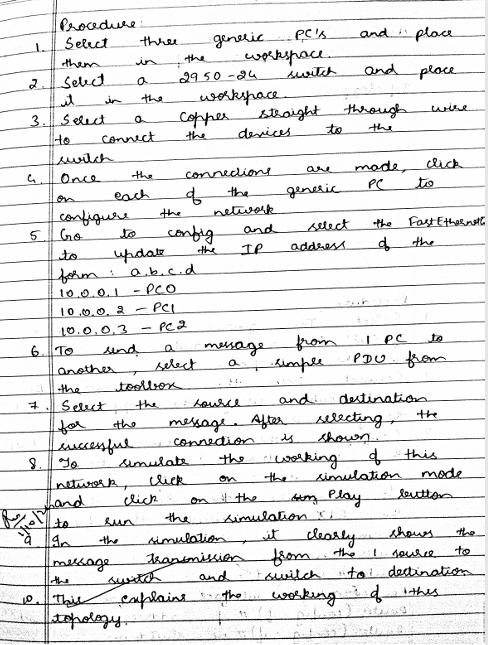 Procedure:
1. Select three generic PC's and place
them in the workspace.
2. Select a 2950-24 switch and place
it in the workspace.
3. Select a copper straight through wire
to connect the devices to the
switch
4. Once the connections are made, click
on each of the generic PC to
configure the network
5 Go to config and select the FastEthernet0
to update the IP address of the
form : a.b.c.d
10.0.0.1 - PC0
10.0.0.2 - PC1
10.0.0.3 - PC2
6. To send a message from 1 PC to
another, select a simple PDU from
the toolbox
7. Select the source and destination
for the message. After selecting, the
successful connection is shown.
8. To simulate the working of this
network, click on the simulation mode
and click on the Play button
to run the simulation.
9 In the simulation, it clearly shows the
message transmission from the 1 source to
the switch and switch to destination
10. This explains the working of this
topology.